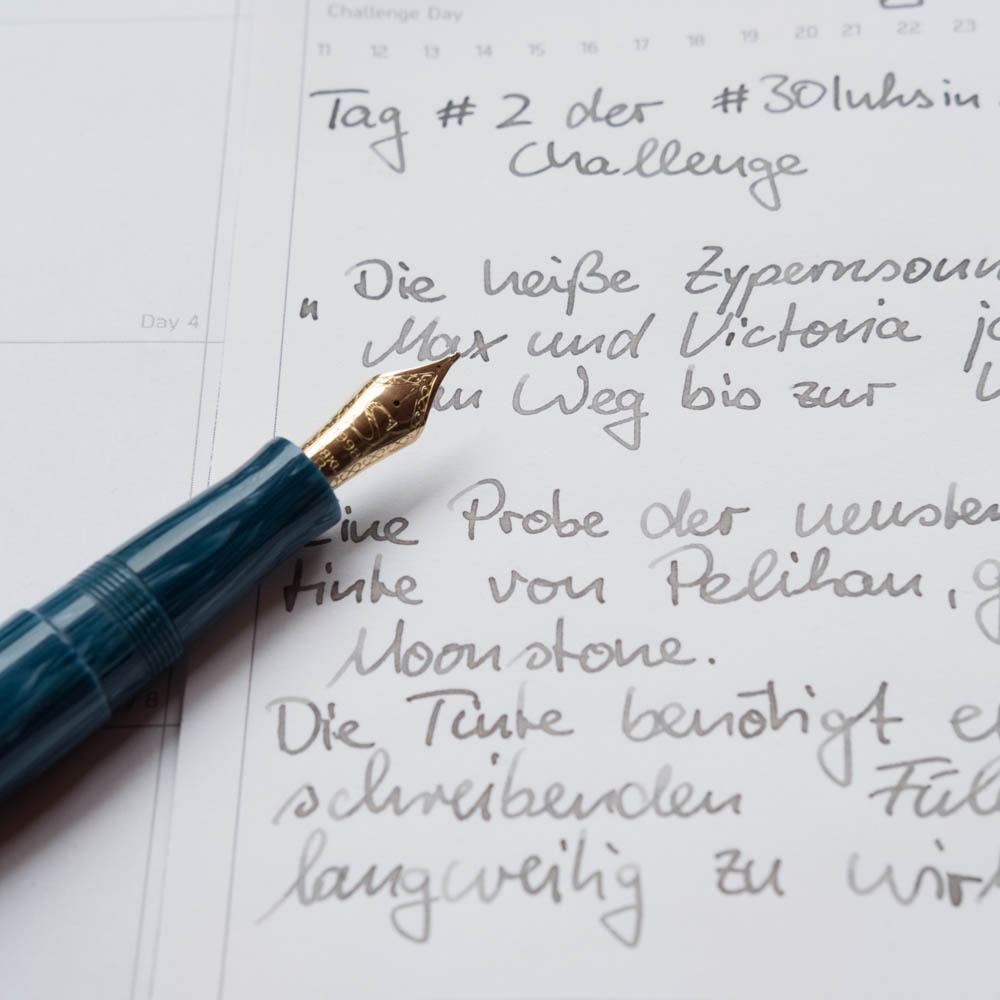 Challenge Day
11 12 13 14 15 16 17 18 19 20 21 22 23
Tag # 2 der #30Inksin
Challenge
„ Die heiße Zypernsonn
Max und Victoria
Weg bis zur
Day 4
Eine Probe der neusten
tinte von Pelikan,
Moonstone.
Die Tinte benötigt
schreibenden Fül
langweilig zu